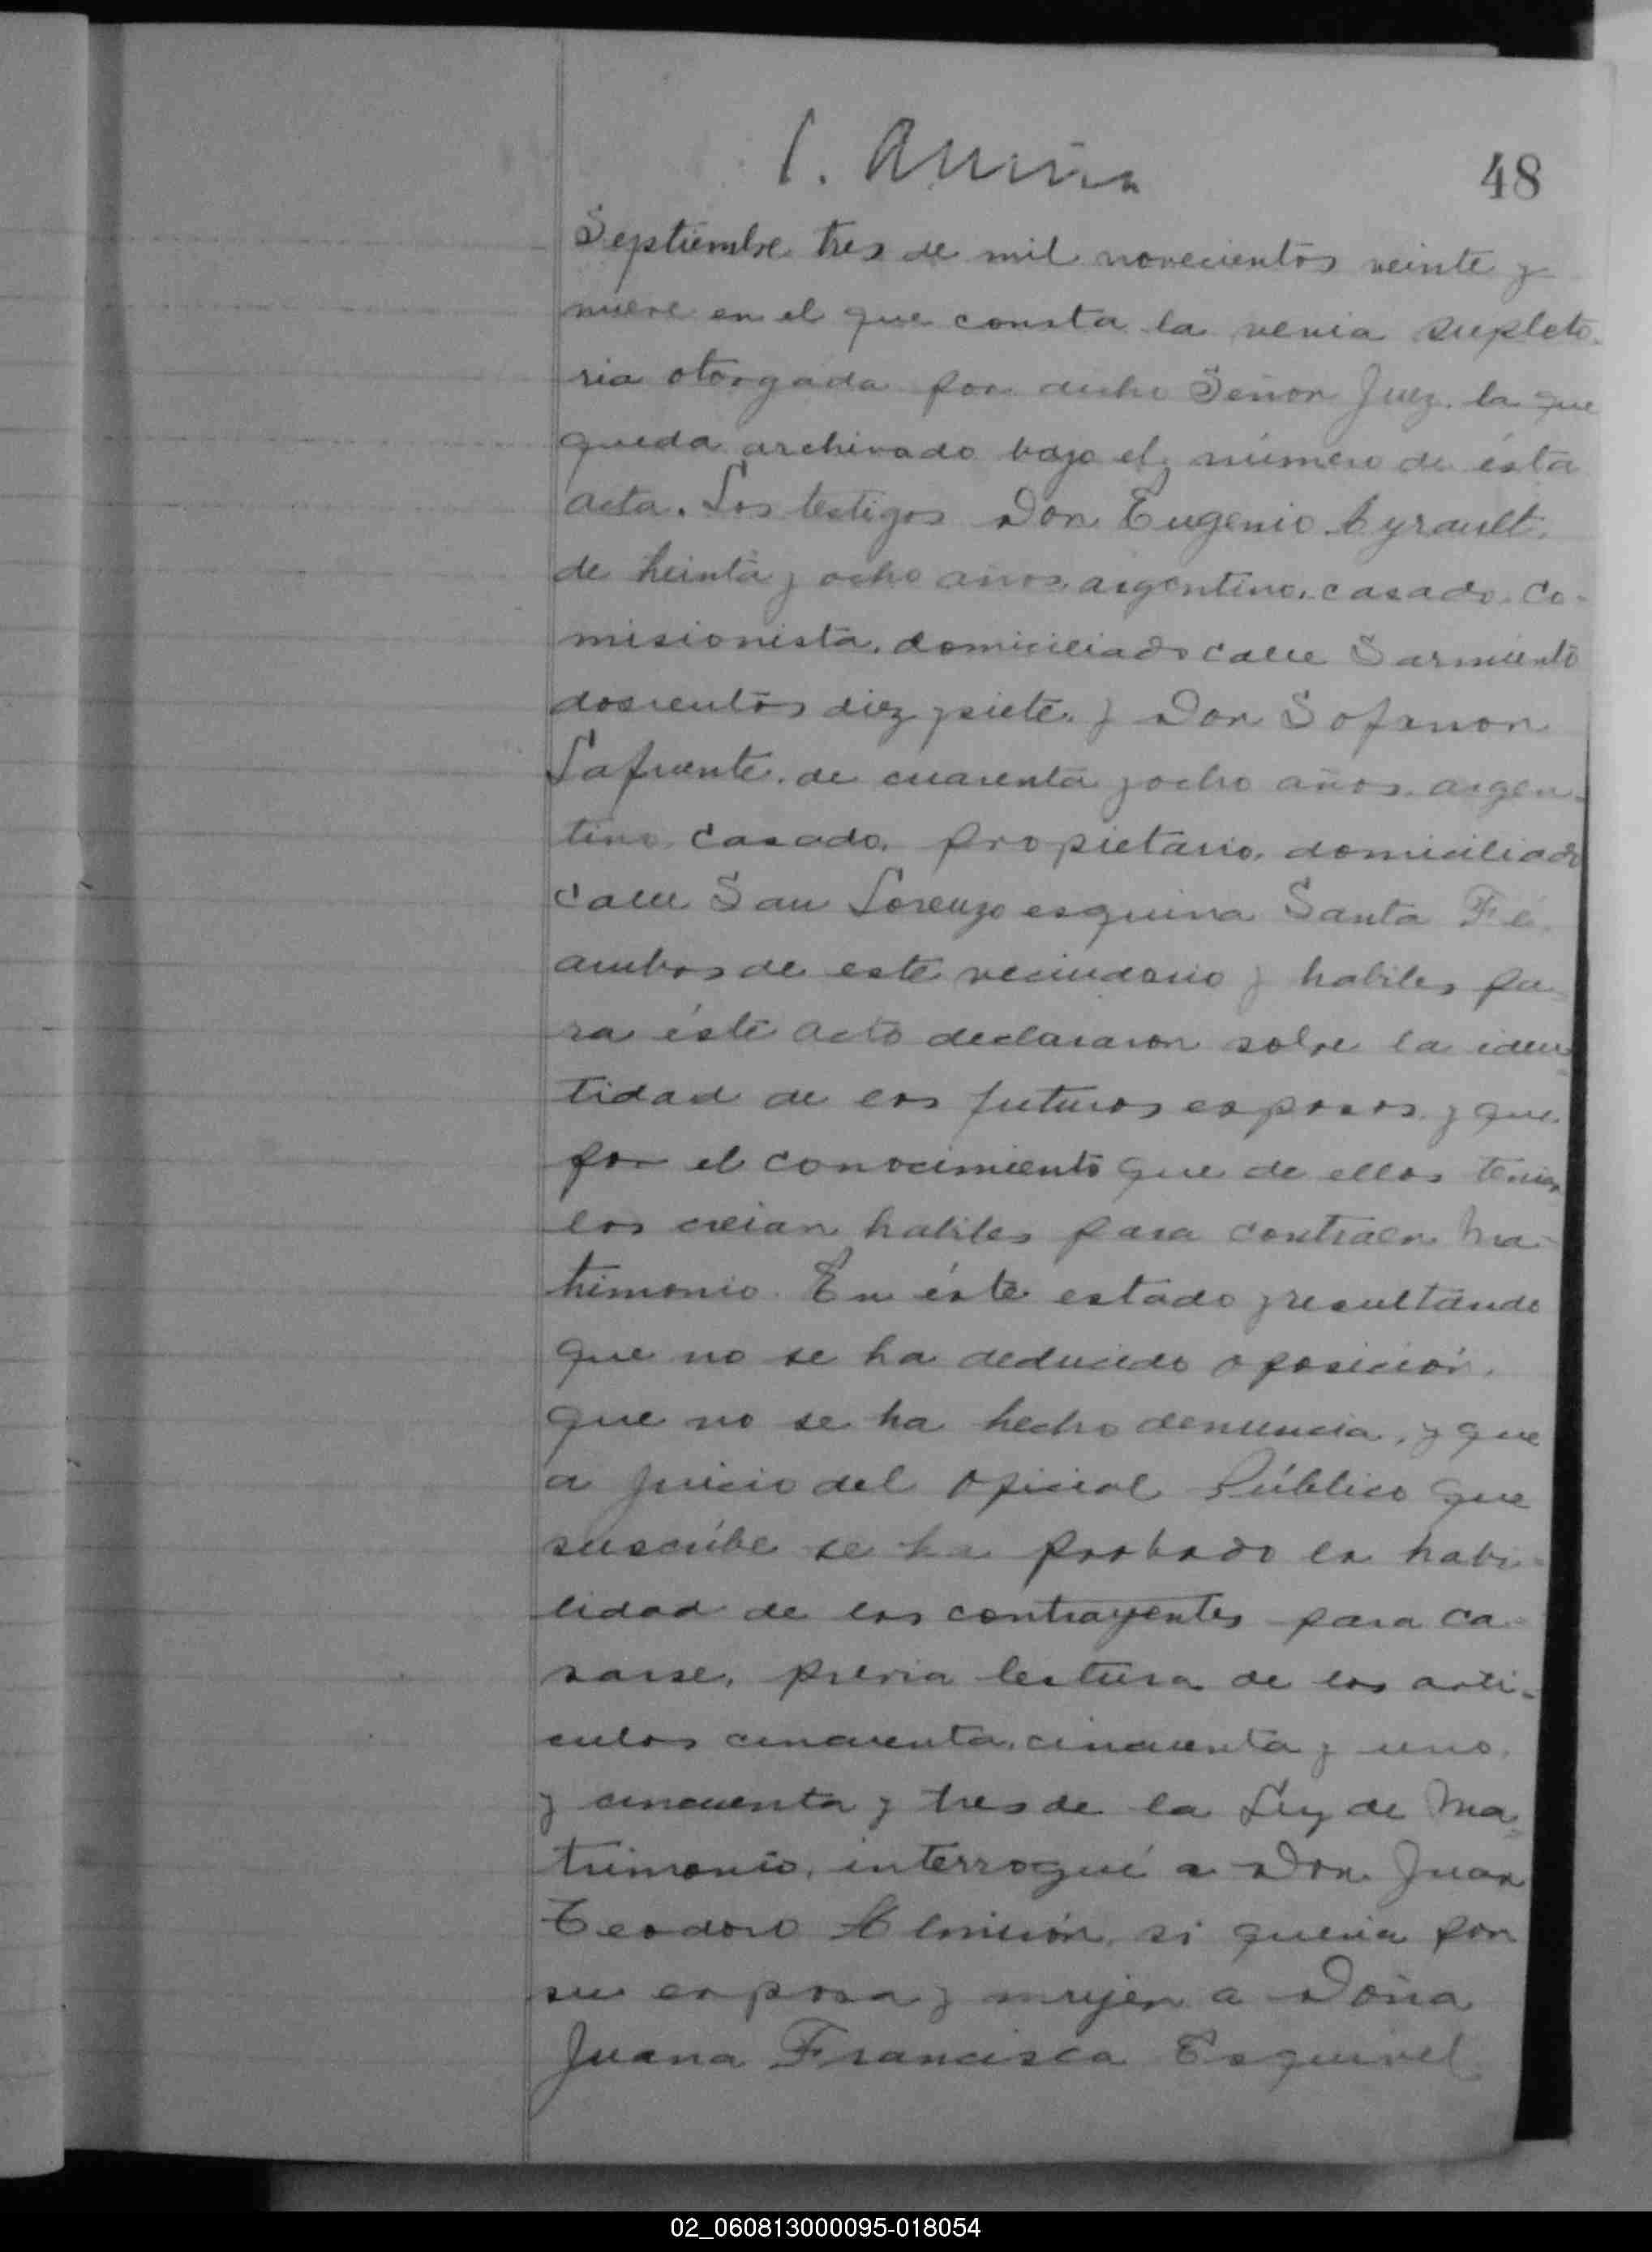 48
Septiembre tres de mil novecientos veinte y
nueve en el que consta la venia supleto-
ria otorgada por dicho Señor Juez. la que
queda archivado bajo el número de ésta
acta. Los testigos Don Eugenio Eyrault,
de treinta y ocho años, argentino, casado, co-
misionista, domiciliado calle Sarmiento
doscientos diez y siete, y Don Sofanor
Lafuente, de cuarenta y ocho años, argen-
tino, casado, propietario, domiciliado
calle San Lorenzo esquina Santa Fé,
ambos de este vecindario y habiles pa-
ra éste acto declararon sobre la iden-
tidad de los futuros esposos y que
por el conocimiento que de ellos tenian
los creian habiles para contraer ma-
trimonio. En éste estado y resultando
que no se ha deducido oposición,
que no se ha hecho denuncia, y que
a juicio del Oficial Público que
suscribe se ha probado la habi-
lidad de los contrayentes para ca-
sarse, previa lectura de los arti-
culos cincuenta, cincuenta y uno,
y cincuenta y tres de la Ley de Ma-
trimonio, interrogué a Don Juan
Teodoro Almirón, si queria por
su esposa y mujer a Doña
Juana Francisca Esquivel
02_060813000095-018054